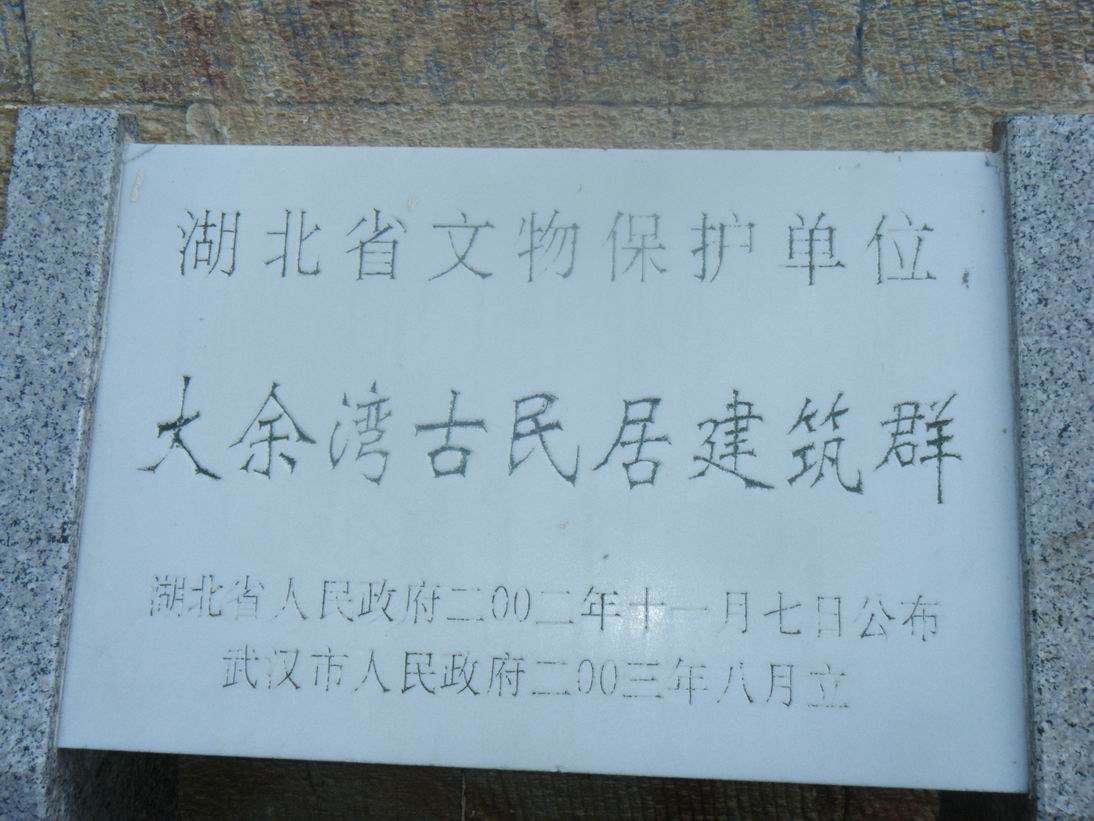 湖北省文物保护单位
大余湾古民居建筑群
湖北省人民政府二00二年十一月七日公布
武汉市人民政府二00三年八月立